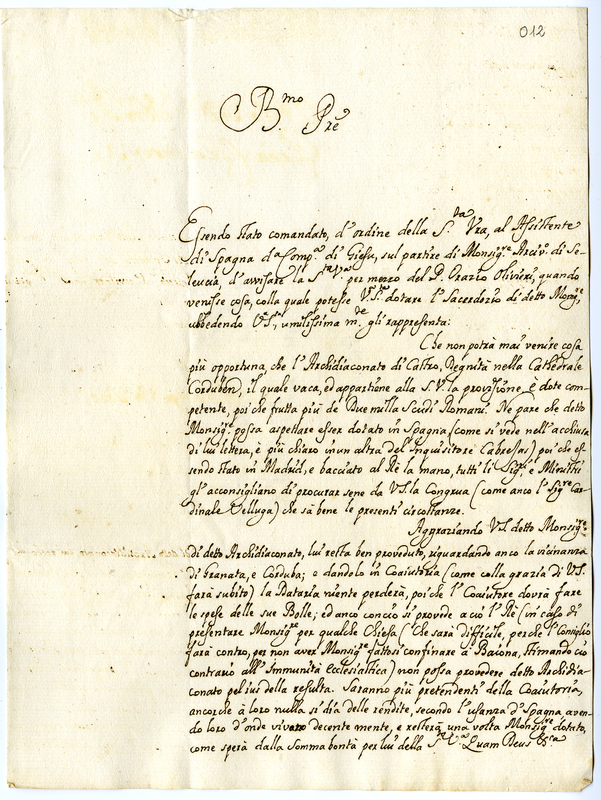 012
B.mo Pre
Essendo stato comandato, d'ordine della S.ta Vra, al Assistente
di Spagna d.a Comp.a di Giesu, sul partire di Monsig.re Arciv.o di Se-
leucia, d'avvisare la S.tà V.a per mezzo del P. Grazio Olivieri, quando
venisse cosa, colla quale potesse V. S.tà dotare l'Sacerdozio di detto Mons.re,
ubbedendo V. S., umilissima m.de gli rappresenta:
Che non potrà mai venire cosa
più opportuna, che l'Archidiaconato di Castro, Degnità nella Cathedrale
Corduben, il quale vaca, ed appartiene alla S. V. la provisione, è dote com-
petente, poi che frutta più de Due milla Scudi Romani. Ne pare che detto
Monsig.re possa aspettare esser dotato in Spagna (come si vede nell'acchiusa
di lui lettera, è più chiaro in un altra del Inquisitore Cabresas) poi che es-
sendo stato in Madrid, e bacciato al Rè la mano, tutti li Sig.ri e Ministri
gl'acconsigliano di procurar sene da V. S. la Congrua (come anco l'Sig.re Car-
dinale Velluga) che sà bene le presenti circostanze.
Aggraziando V. S. detto Monsig.re
di detto Archidiaconato, lui resta ben proveduto, riguardando anco la vicinanza
di Granata, e Corduba; e dandolo in Coaiutoria (come colla grazia di V. S.
farà subito) la Dataria niente perderà, poi che l'Coaiutore dovrà fare
le spese delle sue Bolle; ed anco conciò si provede a ciò l'Rè (in caso di
presentare Monsig.re per qualche Chiesa (che sarà difficile, perche l'Consiglio
farà contro, per non aver Monsig.re fattosi confinare a Baiona, stimando ciò
contrario all'Immunità Ecclesiastica) non possa provedere detto Archidia-
conato pel ius della resulta. Saranno più pretendenti della Coaiutoria,
ancorche à loro nulla si dia delle rendite, secondo l'usanza d'Spagna aven-
do loro d'onde vivere decente mente, e resterà una volta Monsig.re dotato,
come sperà dalla somma bontà per lui della S.tà V.a Quam Deus &ca